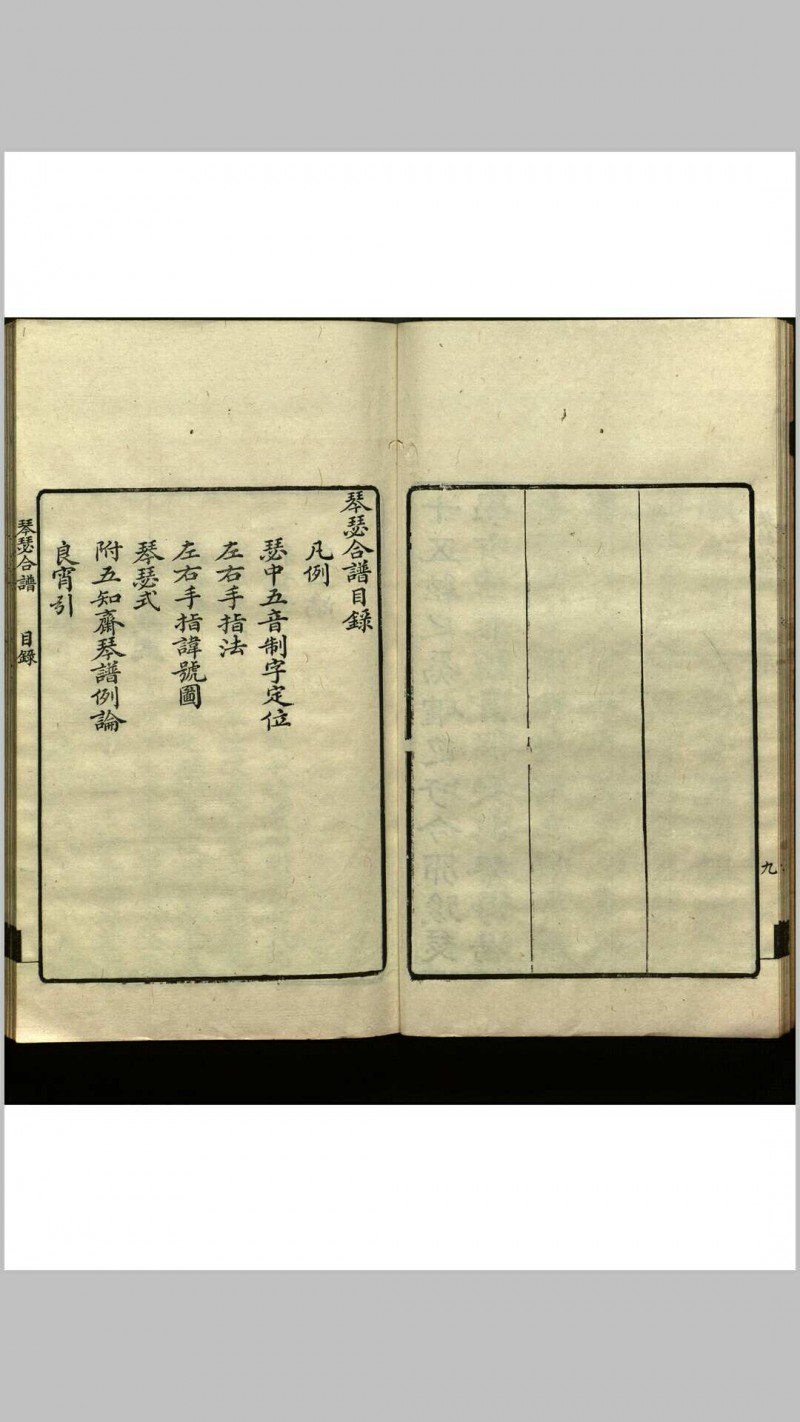 九
琴瑟合譜目錄
凡例
瑟中五音制字定位
左右手指法
左右手指諱號圖
琴瑟式
附五知齋琴譜例論
良宵引
琴瑟合譜 目錄